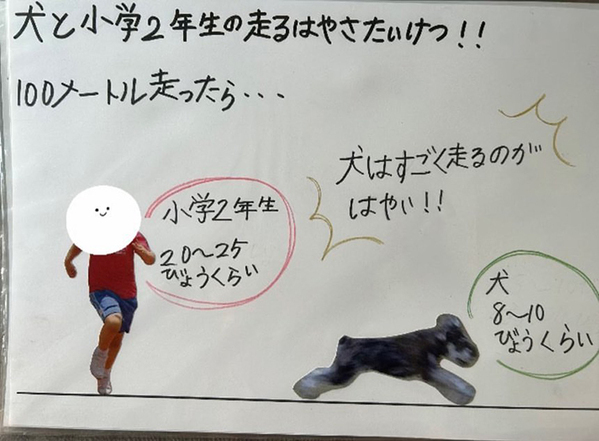 犬と小学2年生の走るはやさたいけつ!!
100メートル走ったら・・・
犬はすごく走るのが
はやい!!
小学2年生
20〜25
びょうくらい
犬
8〜10
びょうくらい